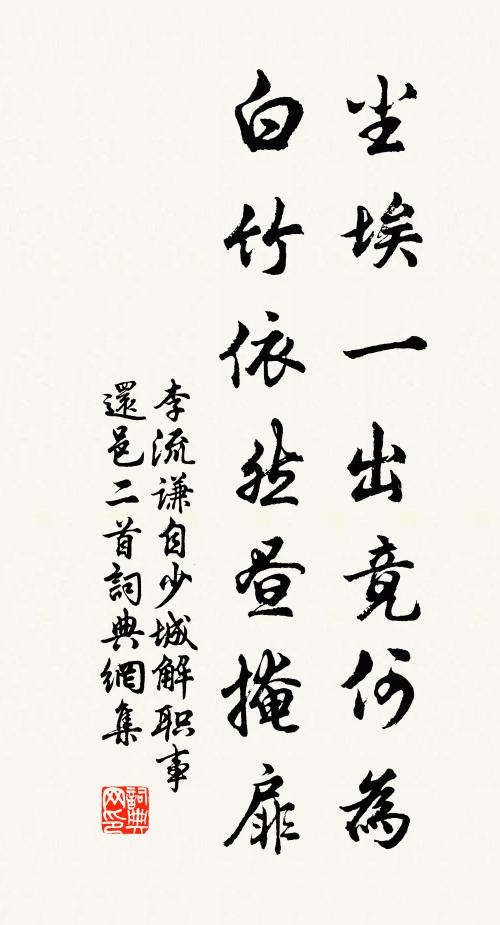 尘埃一出竟何為
白竹依然昼掩扉
李流谦自少城解职事
還邑二首詞典網集
詞典
网印